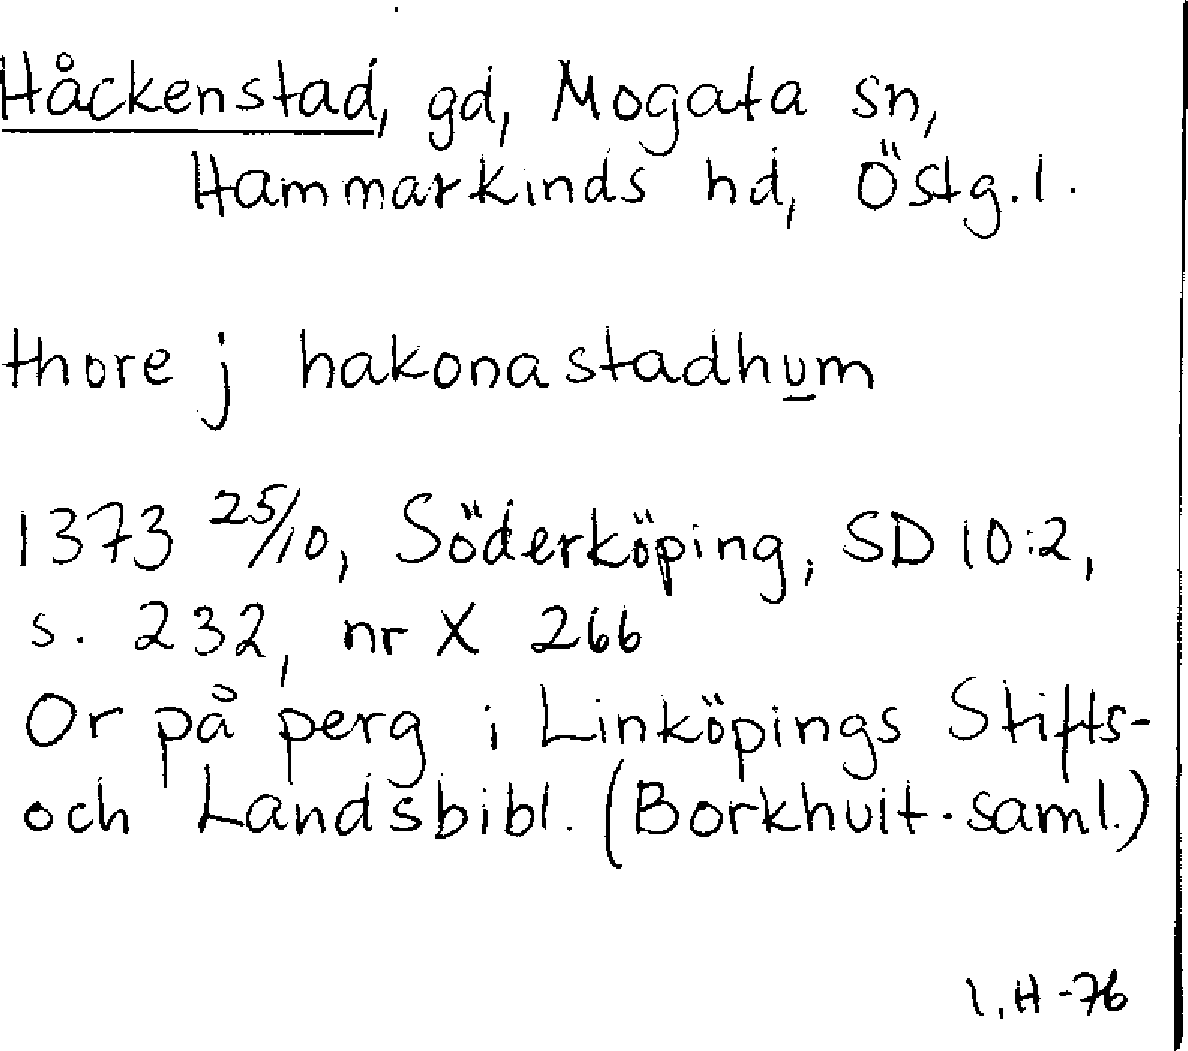 Håckenstad, gd, Mogata sn,
Hammarkinds hd, Östg.l.
thore j hakonastadhum
1373 25/10, Söderköping, SD 10:2,
s. 232, nr X 266
Or på perg i Linköpings Stifts-
och Landsbibl. (Borkhult-saml.)
I.H-76